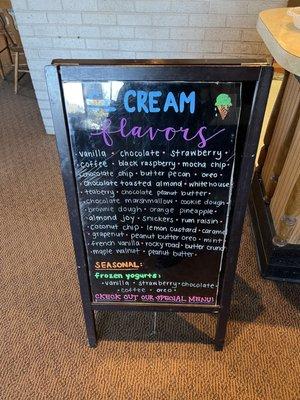 CREAM
flavors
vanilla • chocolate • strawberry •
coffee • black raspberry • mocha chip •
chocolate chip • butter pecan • oreo •
chocolate toasted almond • whitehouse
teaberry • chocolate peanut butter •
chocolate marshmallow • cookie dough •
brownie dough • orange pineapple •
almond joy • snickers • rum raisin •
coconut chip • lemon custard • caramel
grapenut • peanut butter oreo • mint
french vanilla • rocky road • butter crunch
maple walnut • peanut butter
SEASONAL:
frozen yogurts:
• vanilla • strawberry • chocolate
• coffee • oreo •
CHECK OUT OUR SPECIAL MENU!